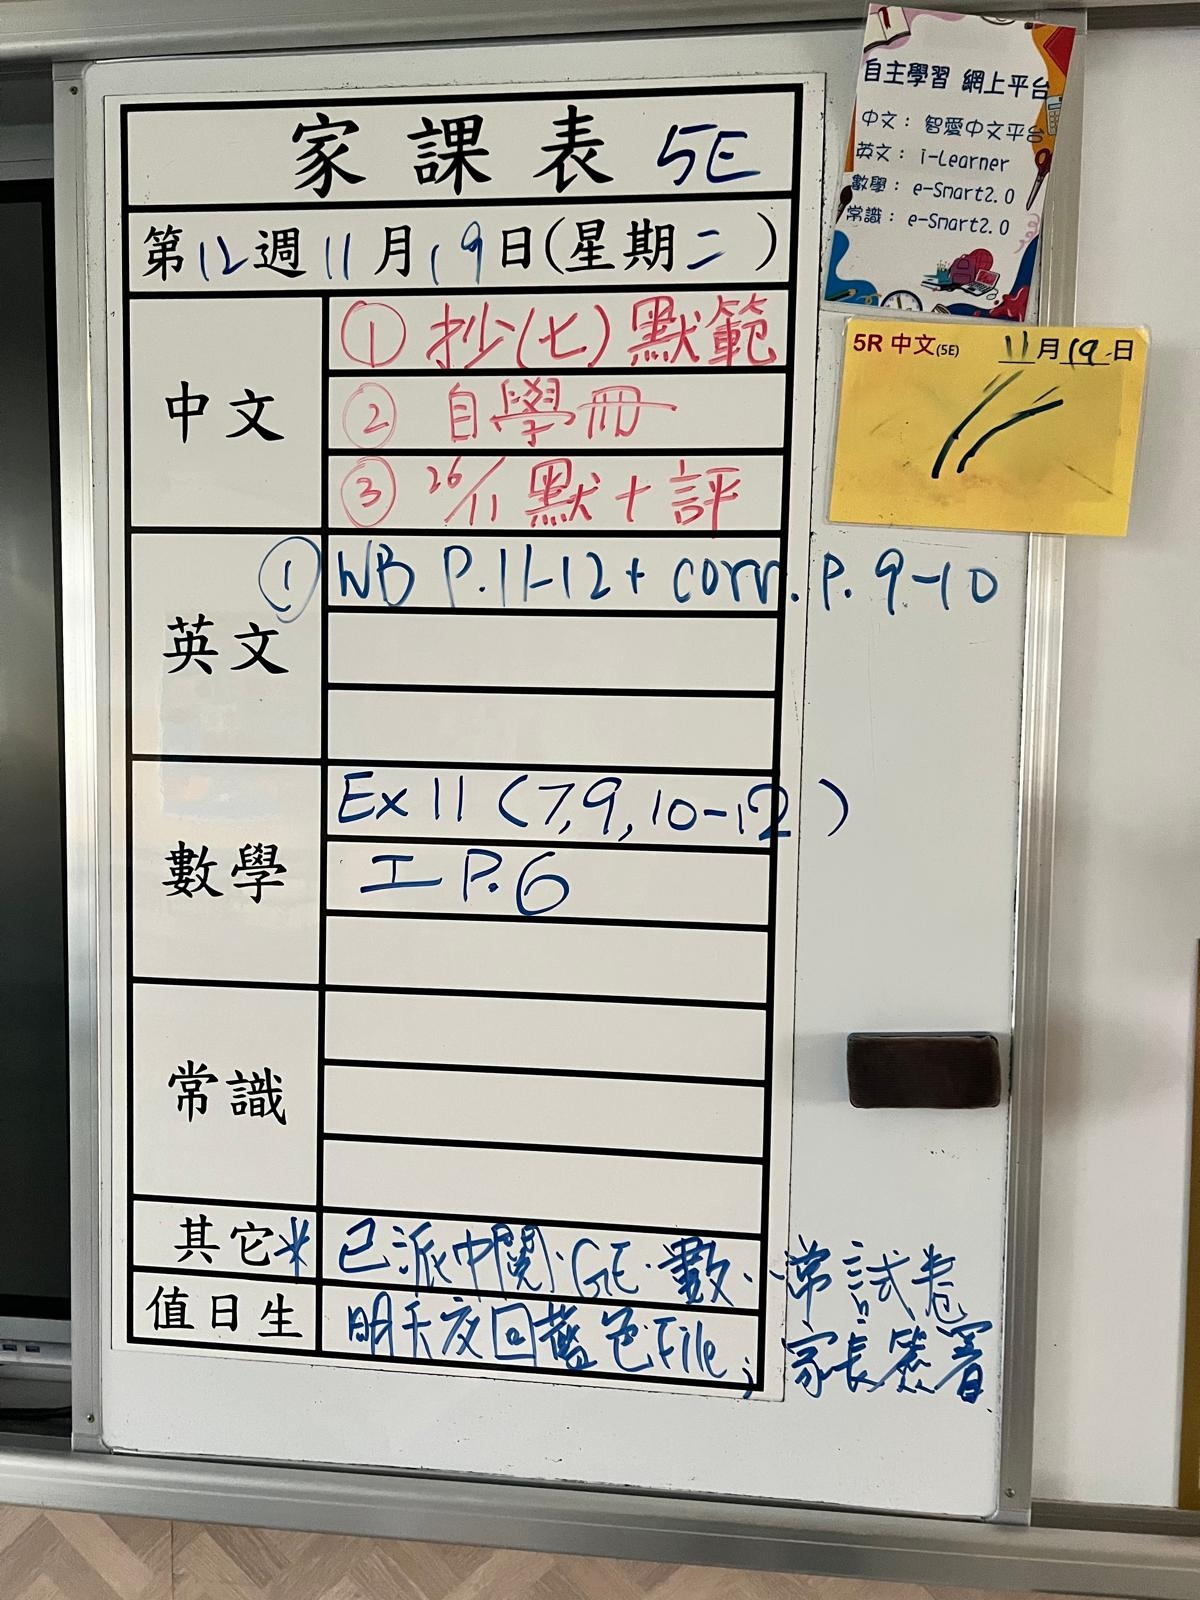 家課表 5E
第12週11月19日(星期二)
中文
① 抄(七)默範
② 自學冊
③ 26/11 默+評
英文
① WB P.11-12 + corr. P. 9-10
數學
Ex 11 (7,9,10-12)
工 P.6
常識
其它* 已派中閱·GE·數·常試卷
值日生 明天交回藍色File; 家長簽署
自主學習 網上平台
中文: 智愛中文平台
英文: i-Learner
數學: e-Smart2.0
常識: e-Smart2.0
5R 中文(5E) 11月19日